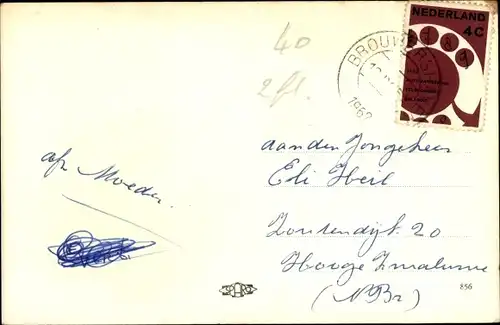 NEDERLAND
4C
BROUW
1962
40
2 fl.
afz. Moeder.
aan den Jongeheer
Edi Heil
Zoutendijk 20
Hooge Zwaluwe
(N Br)
856